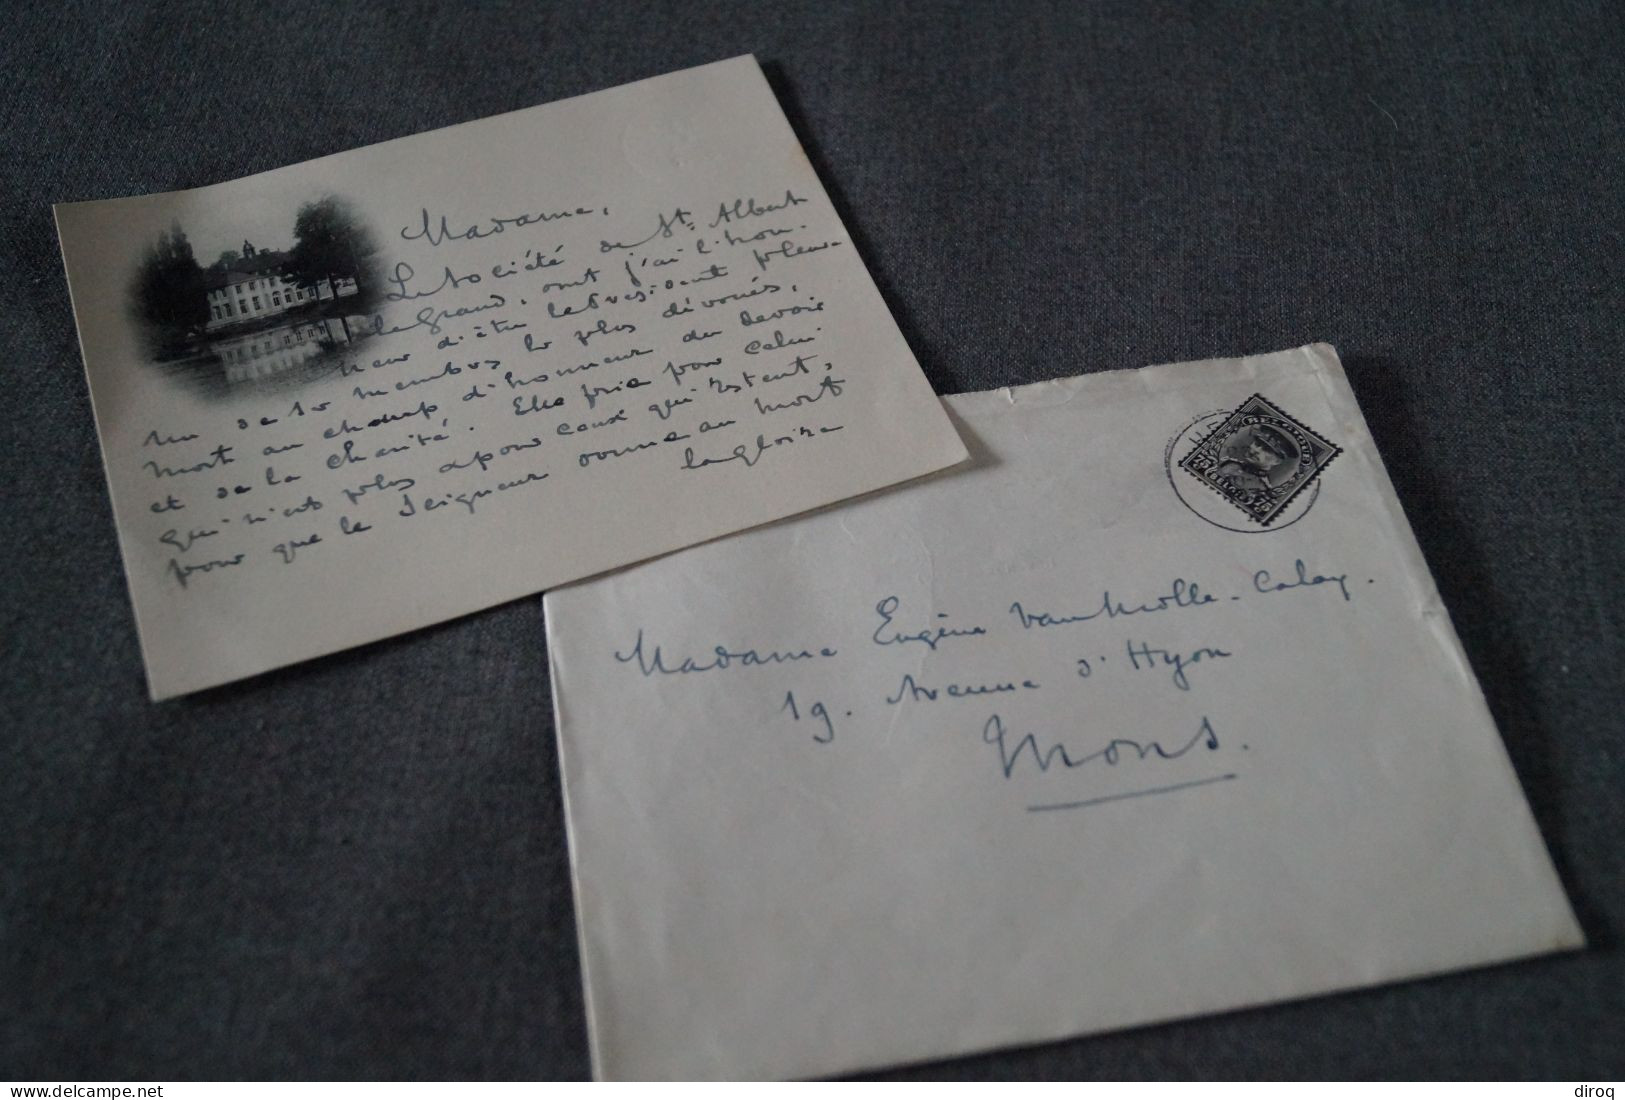 Madame,
La Société de St. Albert
le Grand, dont j'ai l'hon-
neur d'être le Président pleure
un de ses membres les plus dévoués,
mort au champ d'honneur du devoir
et de la charité. Elle prie pour celui
qui n'est plus et pour ceux qui restent,
pour que le Seigneur donne au mort
la gloire
BELGIQUE
Madame Eugène
19. Avenue d'Hyon
Mons.
delcampe.net
diroq